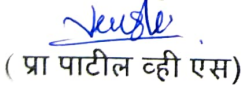 ( प्रा पाटील व्ही एस)